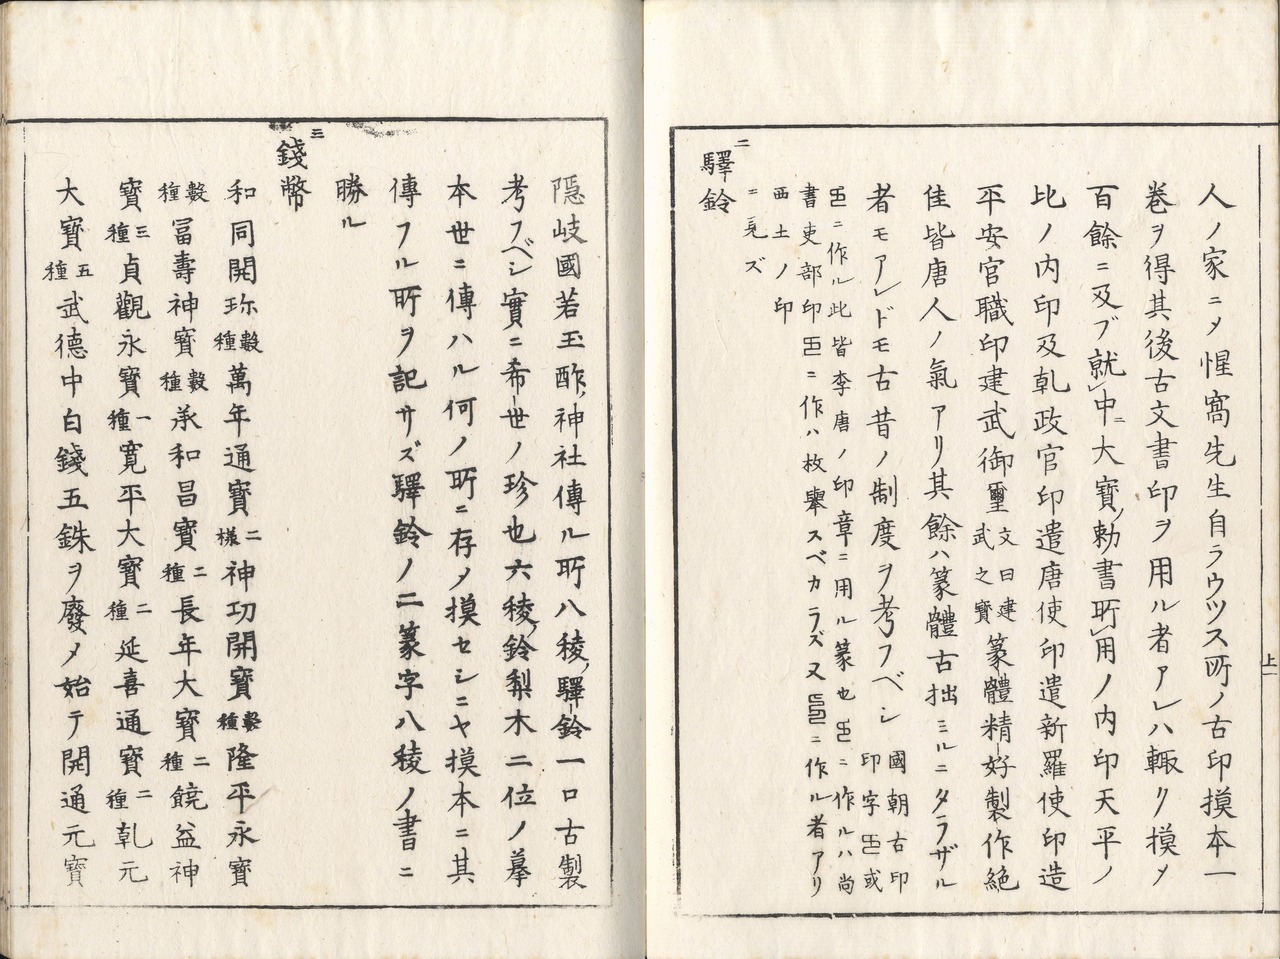 人ノ家ニメ惺窩先生自ラウツス所ノ古印摸本一
巻ヲ得其後古文書印ヲ用ル者アレハ輙クリ摸メ
百餘ニ及ブ就中ニ大寳勅書所用ノ内印天平ノ
比ノ内印及乹政官印遣唐使印遣新羅使印造
平安官職印建武御璽文曰建武之寳篆體精好製作絶
佳皆唐人ノ氣アリ其餘ハ篆體古拙ミルニタラザル
者モアレドモ古昔ノ制度ヲ考フベシ國朝古印印字或
ニ作ル此皆李唐ノ印章ニ用ル篆也ニ作ルハ尚
書吏部印ニ作ハ枚擧スベカラズ又ニ作ル者アリ
西土ノ印
ニ見ズ
二
驛鈴
隠岐國若玉酢神社傳ル所八稜驛鈴一口古製
考フベシ實ニ希世ノ珍也六稜鈴梨木二位ノ摹
本世ニ傳ハル何ノ所ニ存メ摸セシニヤ摸本ニ其
傳フル所ヲ記サズ驛鈴ノ二篆字八稜ノ書ニ
勝ル
三
錢幣
和同開珎數種萬年通寳二樣神功開寳數種隆平永寳
數種冨壽神寳數種承和昌寳二種長年大寳二種饒益神
寳三種貞觀永寳一種寛平大寳二種延喜通寳二種乹元
大寳五種武德中白錢五銖ヲ廢メ始テ開通元寳
上一